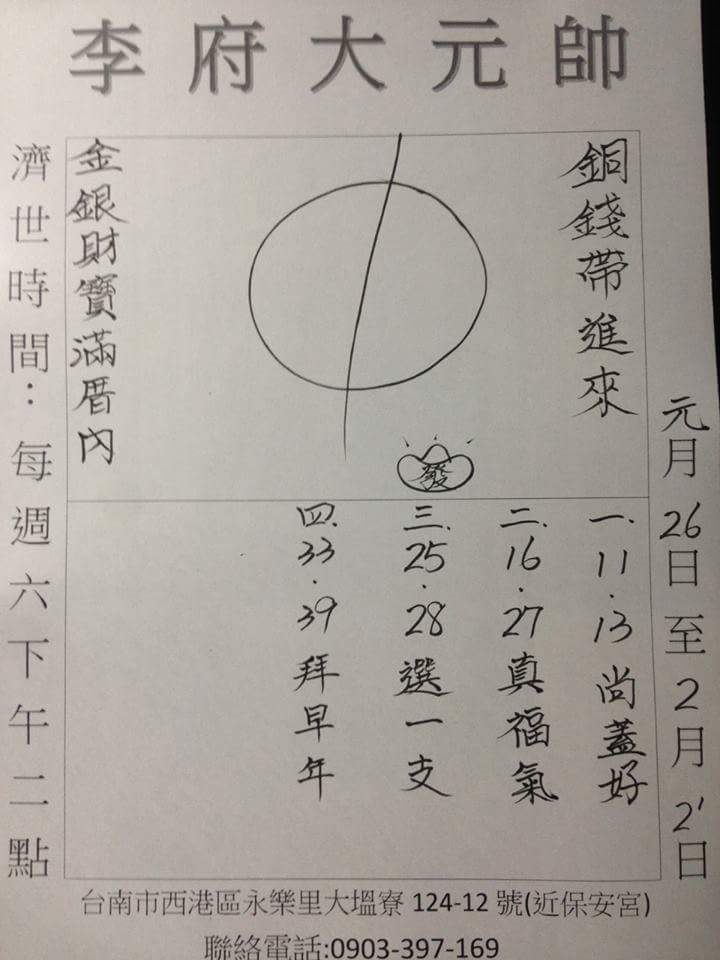 李府大元帥
元月26日至2月2'日
銅錢帶進來
發
金銀財寶滿厝內
一.11.13尚蓋好
二.16.27真福氣
三.25.28選一支
四.33.39拜早年
濟世時間：每週六下午二點
台南市西港區永樂里大塭寮 124-12 號(近保安宮)
聯絡電話:0903-397-169